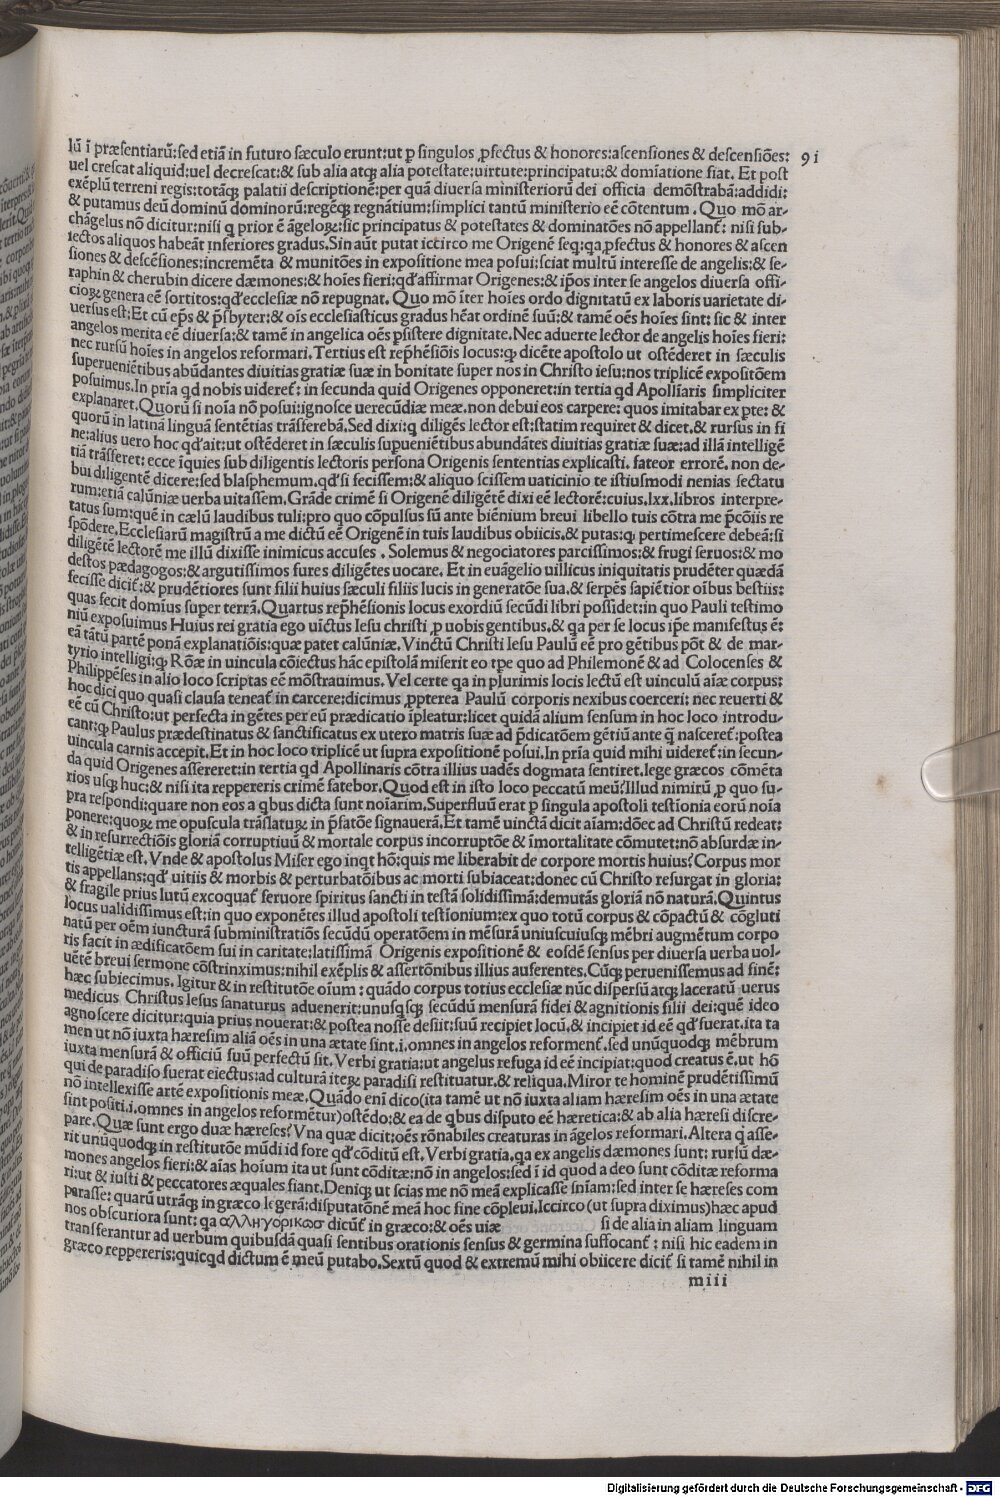 lũ ĩ præsentiarũ:sed etiã in futuro sæculo erunt:ut ꝑ singulos ꝓfectus & honores:ascensiones & descensiões:
9 i
uel crescat aliquid:uel decrescat:& sub alia atqꝫ alia potestate:uirtute:principatu:& domiatione fiat. Et post
exẽplũ terreni regis:totãqꝫ palatii descriptionẽ:per quã diuersa ministeriorũ dei officia demõstrabã:addidi:
& putamus deũ dominũ dominorũ:regẽqꝫ regnãtium:simplici tantũ ministerio eẽ cõtentum. Quo mõ ar-
chãgelus nõ dicitur:nisi q prior ẽ ãgeloꝝ:sic principatus & potestates & dominatões nõ appellant̃: nisi sub-
iectos aliquos habeãt inferiores gradus.Sin aũt putat iccirco me Origenẽ seq:qa ꝓfectus & honores & ascen
siones & descẽsiones:incremẽta & munitões in expositione mea posui:sciat multũ interesse de angelis:& se-
raphin & cherubin dicere dæmones:& hoies fieri:qď affirmar Origenes:& ip̃os inter se angelos diuersa offi-
cioꝝ genera eẽ sortitos:qď ecclesiæ nõ repugnat. Quo mõ ĩter hoies ordo dignitatũ ex laboris uarietate di-
uersus est:Et cũ ep̃s & p̃sbyter:& oĩs ecclesiasticus gradus hẽat ordinẽ suũ:& tamẽ oẽs hoĩes sint: sic & inter
angelos merita eẽ diuersa:& tamẽ in angelica oẽs ꝑsistere dignitate. Nec aduerte lector de angelis hoĩes fieri:
nec rursũ hoĩes in angelos reformari.Tertius est rep̃hẽsiõis locus:ꝙ dicẽte apostolo ut ostẽderet in sæculis
superueniẽtibus abũdantes diuitias gratiæ suæ in bonitate super nos in Christo iesu:nos triplicẽ expositõem
posuimus.In prĩa qd nobis uideret̃: in secunda quid Origenes opponeret:in tertia qd Apollĩaris simpliciter
explanaret.Quorũ si noĩa nõ posui:ignosce uerecũdiæ meæ.non debui eos carpere: quos imitabar ex ꝑte: &
quorũ in latinã linguã sentẽtias trãsferebã.Sed dixi:q diligẽs lector est:statim requiret & dicet.& rursus in fi
ne:alius uero hoc qď ait:ut ostẽderet in sæculis supueniẽtibus abundãtes diuitias gratiæ suæ:ad illã intelligẽ
tiã trãsferet: ecce ĩquies sub diligentis lectoris persona Origenis sententias explicasti. fateor errorẽ. non de-
bui diligentẽ dicere:sed blasphemum.qď si fecissem:& aliquo scissem uaticinio te istiusmodi nenias sectatu
rum:etiã calũniæ uerba uitassem.Grãde crimẽ si Origenẽ diligẽtẽ dixi eẽ lectorẽ:cuius.lxx.libros interpre-
tatus sum:quẽ in cælũ laudibus tuli:pro quo cõpulsus sũ ante biẽnium breui libello tuis cõtra me p̃cõiis re
spõdere.Ecclesiarũ magistrũ a me dictũ eẽ Origenẽ in tuis laudibus obiicis.& putas:ꝙ pertimescere debeã:si
diligẽtẽ lectorẽ me illũ dixisse inimicus accuses. Solemus & negociatores parcissimos:& frugi seruos:& mo
destos pædagogos:& argutissimos fures diligẽtes uocare. Et in euãgelio uillicus iniquitatis prudẽter quædã
fecisse dicit̃:& prudẽtiores sunt filii huius sæculi filiis lucis in generatõe sua.& serpẽs sapiẽtior oĩbus bestiis:
quas fecit domĩus super terrã.Quartus rep̃hẽsionis locus exordiũ secũdi libri possidet:in quo Pauli testimo
niũ exposuimus Huius rei gratia ego uĩctus Iesu christi ꝓ uobis gentibus.& qa per se locus ip̃e manifestus ẽ:
eã tãtũ partẽ ponã explanatiõis:quæ patet calũniæ.Vinctũ Christi Iesu Paulũ eẽ pro gẽtibus põt & de mar-
tyrio intelligi:ꝙ Rõæ in uincula cõiectus hãc epistolã miserit eo tp̃e quo ad Philemonẽ & ad Colocenses &
Philippẽses in alio loco scriptas eẽ mõstrauimus.Vel certe qa in plurimis locis lectũ est uinculũ aiæ corpus:
hoc dici quo quasi clausa teneat̃ in carcere:dicimus ꝓpterea Paulũ corporis nexibus coerceri: nec reuerti &
eẽ cũ Christo:ut perfecta in gẽtes per eũ prædicatio ĩpleatur:licet quidã alium sensum in hoc loco introdu-
cant:ꝙ Paulus prædestinatus & sanctificatus ex utero matris suæ ad p̃dicatõem gẽtiũ ante q̃ nasceret̃:postea
uincula carnis accepit.Et in hoc loco triplicẽ ut supra expositionẽ posui.In prĩa quid mihi uideret̃:in secun-
da quid Origenes assereret:in tertia qd Apollinaris cõtra illius uadẽs dogmata sentiret.lege græcos cõmẽta
rios usqꝫ huc:& nisi ita reppereris crimẽ fatebor.Quod est in isto loco peccatũ meũ?Illud nimirũ ꝓ quo su-
pra respondi:quare non eos a qbus dicta sunt noĩarim.Superfluũ erat ꝑ singula apostoli testiõnia eorũ noĩa
ponere:quoꝝ me opuscula trãslatuꝝ in p̃fatõe signauerã.Et tamẽ uinctã dicit aĩam:dõec ad Christũ redeat:
& in resurrectiõis gloriã corruptiuũ & mortale corpus incorruptõe & ĩmortalitate cõmutet:nõ absurdæ in-
telligẽtiæ est.Vnde & apostolus Miser ego inqt hõ:quis me liberabit de corpore mortis huius?Corpus mor
tis appellans:qď uitiis & morbis & perturbatõibus ac morti subiaceat:donec cũ Christo resurgat in gloria:
& fragile prius lutũ excoquat̃ feruore spiritus sancti in testã solidissimã:demutãs gloriã nõ naturã.Quintus
locus ualidissimus est:in quo exponẽtes illud apostoli testĩonium:ex quo totũ corpus & cõpactũ & cõgluti
natũ per oẽm iuncturã subministratiõs secũdũ operatõem in mẽsurã uniuscuiusqꝫ mẽbri augmẽtum corpo
ris facit in ædificatõem sui in caritate:latissimã Origenis expositionẽ & eosdẽ sensus per diuersa uerba uol-
uẽtẽ breui sermone cõstrinximus:nihil exẽplis & assertõnibus illius auferentes.Cũqꝫ peruenissemus ad finẽ:
hæc subiecimus. Igitur & in restitutõe oĩum: quãdo corpus totius ecclesiæ nũc dispersũ atqꝫ laceratũ uerus
medicus Christus Iesus sanaturus aduenerit:unusqsqꝫ secũdũ mensurã fidei & agnitionis filii dei:quẽ ideo
agnoscere dicitur:quia prius nouerat:& postea nosse desiit:suũ recipiet locũ.& incipiet id eẽ qď fuerat.ita ta
men ut nõ iuxta hæresim aliã oẽs in una ætate sint.i.omnes in angelos reforment̃.sed unũquodqꝫ mẽbrum
iuxta mensurã & officiũ suũ perfectũ sit.Verbi gratia:ut angelus refuga id eẽ incipiat:quod creatus ẽ.ut hõ
qui de paradiso fuerat eiectus:ad culturã iteꝝ paradisi restituatur.& reliqua.Miror te hominẽ prudẽtissimũ
nõ intellexisse artẽ expositionis meæ.Quãdo enĩ dico(ita tamẽ ut nõ iuxta aliam hæresim oẽs in una ætate
sint positi.i.omnes in angelos reformẽtur)ostẽdo:& ea de qbus disputo eẽ hæretica:& ab alia hæresi discre-
pare.Quæ sunt ergo duæ hæreses?Vna quæ dicit:oẽs rõnabiles creaturas in ãgelos reformari.Altera q̃ asse-
rit unũquodqꝫ in restitutõe mũdi id fore qď cõditũ est.Verbi gratia.qa ex angelis dæmones sunt: rursũ dæ-
mones angelos fieri:& aĩas hoĩum ita ut sunt cõditæ:nõ in angelos:sed ĩ id quod a deo sunt cõditæ reforma
ri:ut & iusti & peccatores æquales fiant.Deniqꝫ ut scias me nõ meã explicasse sñiam:sed inter se hæreses com
parasse: quarũ utrãqꝫ in græco legerã:disputatõnẽ meã hoc fine cõpleui.Iccirco(ut supra diximus)hæc apud
nos obscuriora sunt: qa αλληγορικασ dicũt̃ in græco:& oẽs uiæ si de alia in aliam linguam
transferantur ad uerbum quibusdã quasi sentibus orationis sensus & germina suffocant̃: nisi hic eadem in
græco reppereris:quicqd dictum ẽ meũ putabo.Sextũ quod & extremũ mihi obiicere dicit̃ si tamẽ nihil in
m iii
Digitalisierung gefördert durch die Deutsche Forschungsgemeinschaft - DFG